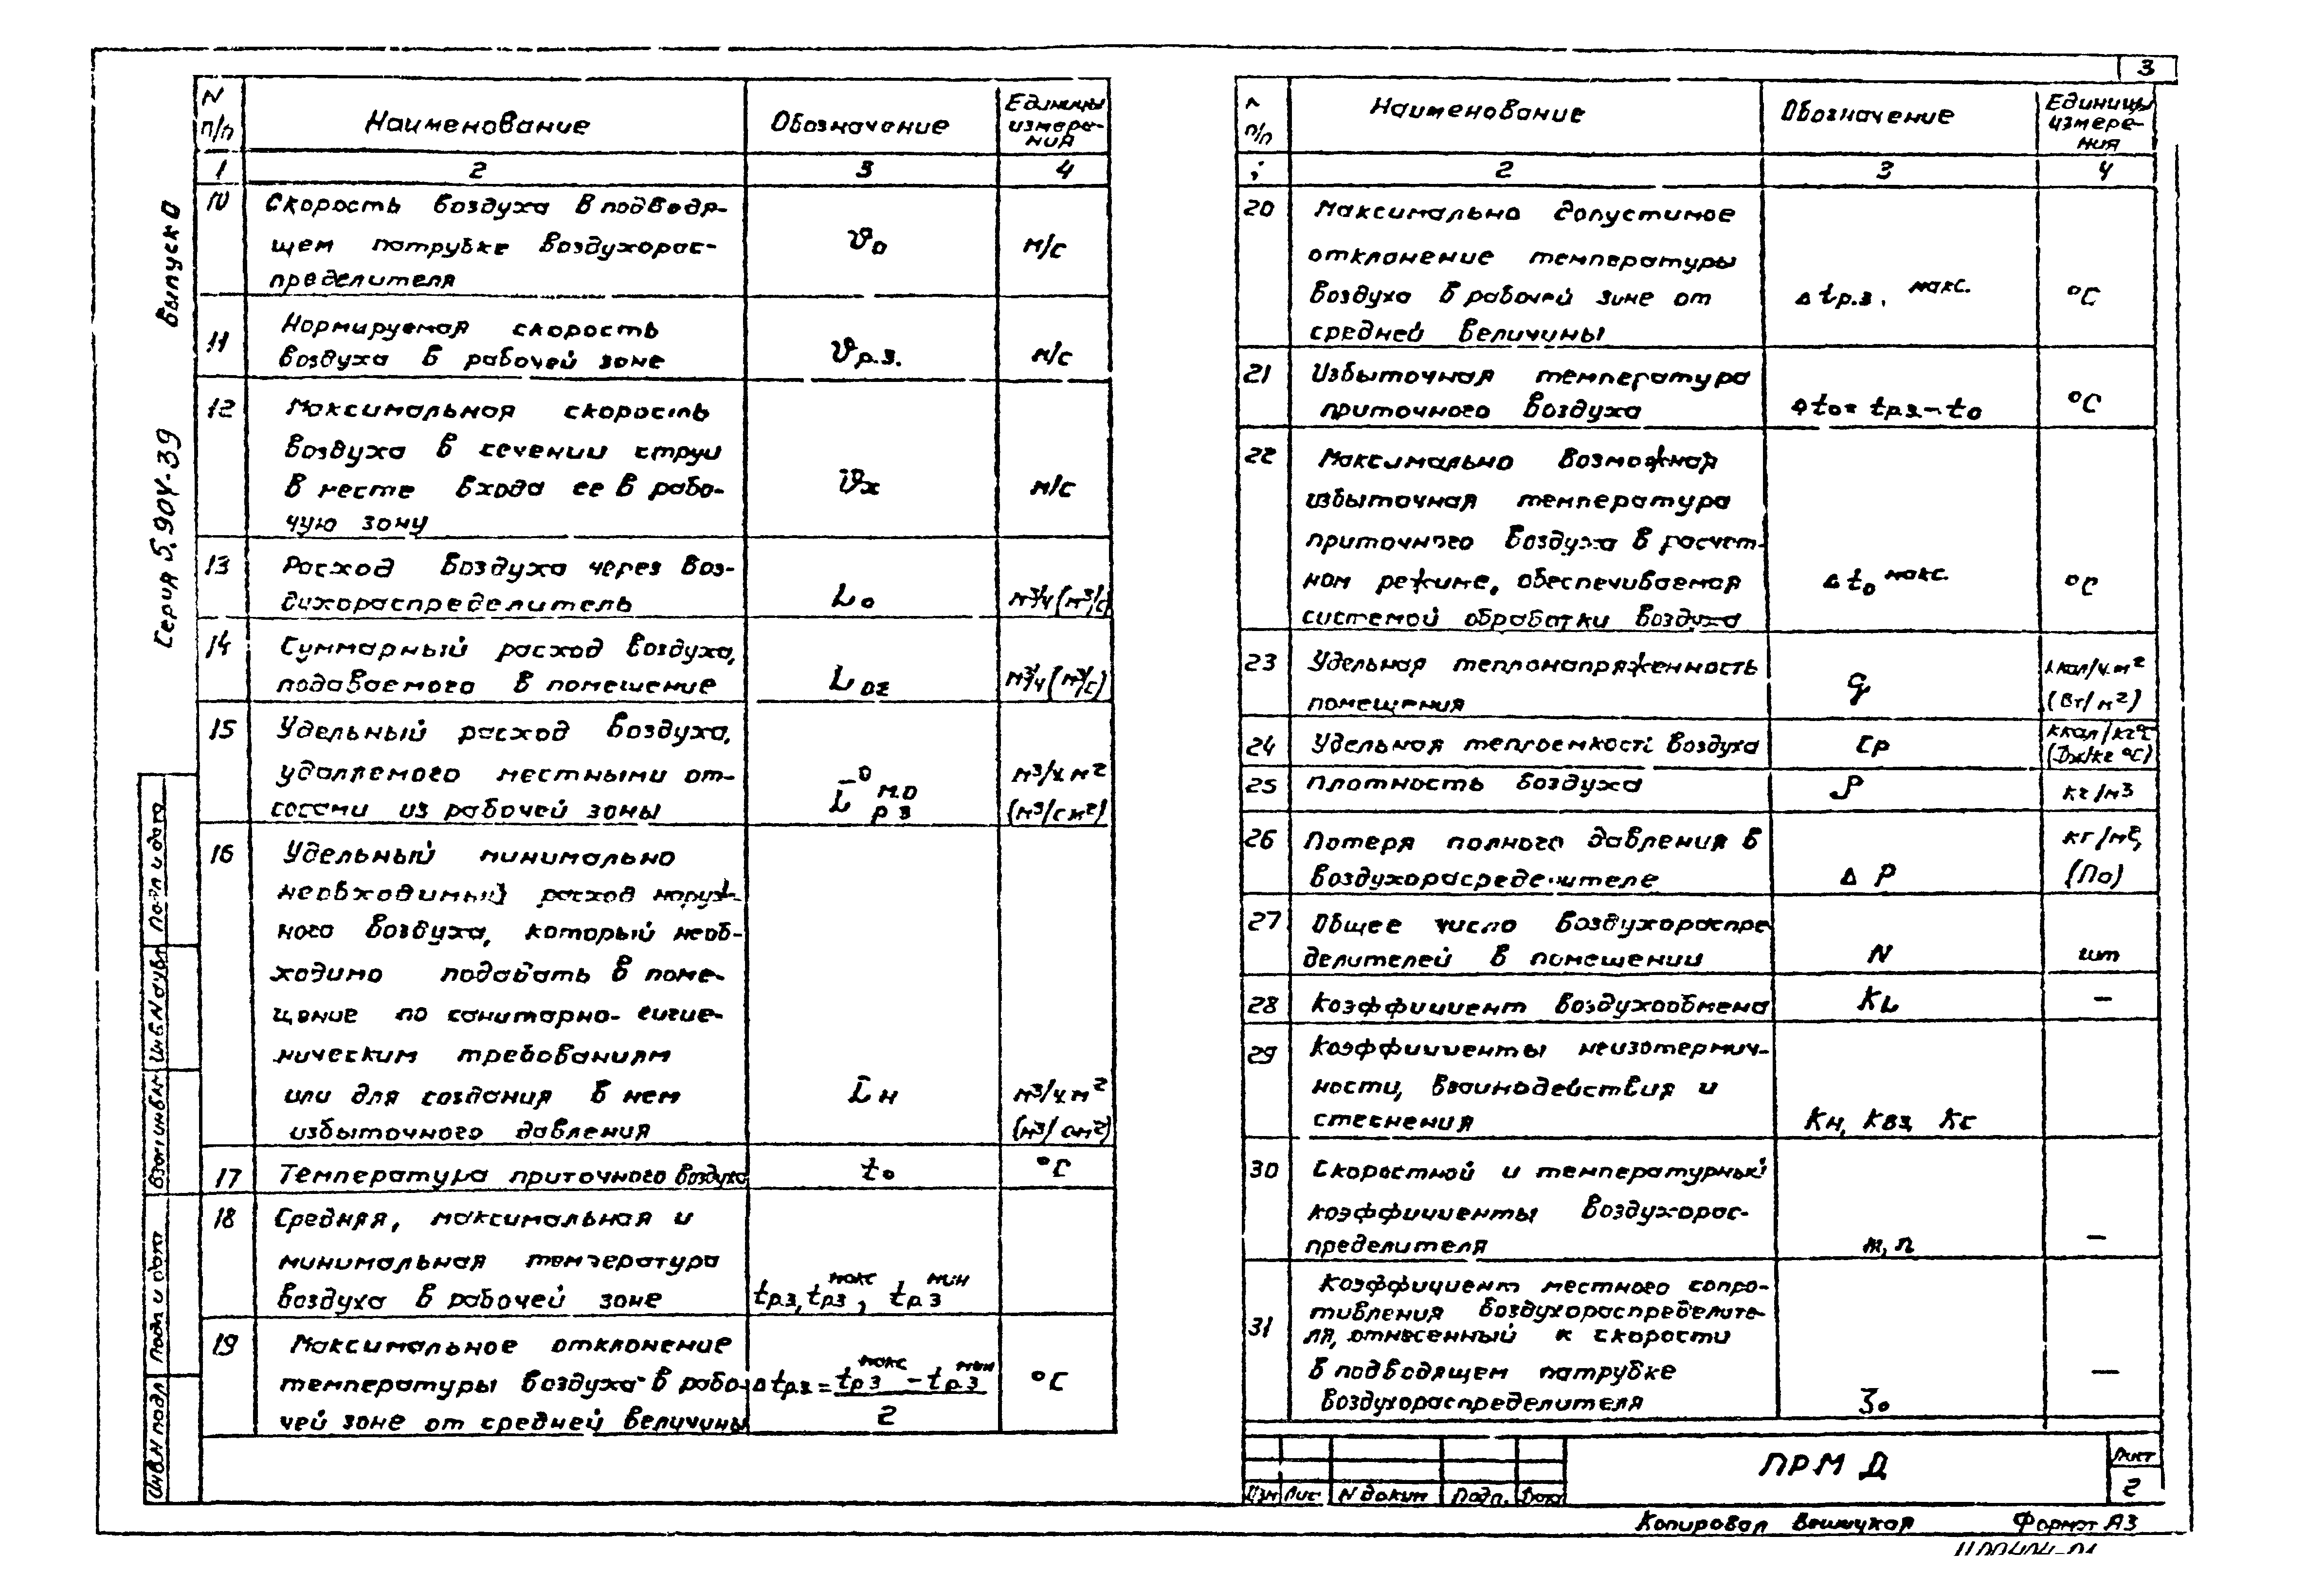 3
N п/п Наименование Обозначение Единицы измерения
1 2 3 4
10 Скорость воздуха в подводя-
щем патрубке воздухорас- ϑ₀ м/с
пределителя
11 Нормируемая скорость
воздуха в рабочей зоне ϑр.з. м/с
12 Максимальная скорость
воздуха в сечении струи
в месте входа ее в рабо- ϑх м/с
чую зону
13 Расход воздуха через воз-
духораспределитель L₀ м³/ч (м³/с)
14 Суммарный расход воздуха,
подаваемого в помещение L м³/ч (м³/с)
15 Удельный расход воздуха,
удаляемого местными от- м³/ч м²
сосами из рабочей зоны L м.о р з (м³/с м²)
16 Удельный минимально
необходимый расход наруж-
ного воздуха, который необ-
ходимо подавать в поме-
щение по санитарно-гигие-
ническим требованиям
или для создания в нем L̄н м³/ч м²
избыточного давления (м³/см²)
17 Температура приточного воздуха t₀ °С
18 Средняя, максимальная и
минимальная температура
воздуха в рабочей зоне tр.з, tр.з макс, tр.з мин
19 Максимальное отклонение
температуры воздуха в рабо- Δtр.з = (tр.з макс − tр.з мин) °С
чей зоне от средней величины 2
N п/п Наименование Обозначение Единицы измерения
2 3 4
20 Максимально допустимое
отклонение температуры
воздуха в рабочей зоне от Δtр.з. макс. °С
средней величины
21 Избыточная температура
приточного воздуха Δt₀= tр.з−t₀ °С
22 Максимально возможная
избыточная температура
приточного воздуха в расчет-
ном режиме, обеспечиваемая Δt₀ макс. °С
системой обработки воздуха
23 Удельная теплонапряженность ккал/ч.м²
помещения q (Вт/м²)
24 Удельная теплоемкость воздуха Cр ккал/кг°С (Дж/кг °С)
25 Плотность воздуха ρ кг/м³
26 Потеря полного давления в кг/м²,
воздухораспределителе Δ Р (Па)
27 Общее число воздухораспре
делителей в помещении N шт
28 Коэффициент воздухообмена КL —
29 Коэффициенты неизотермич-
ности, взаимодействия и
стеснения Кн, Квз, Кс
30 Скоростной и температурный
коэффициенты воздухорас-
пределителя m, n —
Коэффициент местного сопро-
тивления воздухораспределите-
31 ля, отнесенный к скорости
в подводящем патрубке —
воздухораспределителя ζ₀
Серия 5.904-39 Выпуск 0
Подп и дата
Инв N дубл
Взам инв N
Подп и дата
Инв.N подл
Изм Лис N докум Подп. Дата
ПРМ Д
Лист
2
Копировал
Формат А3